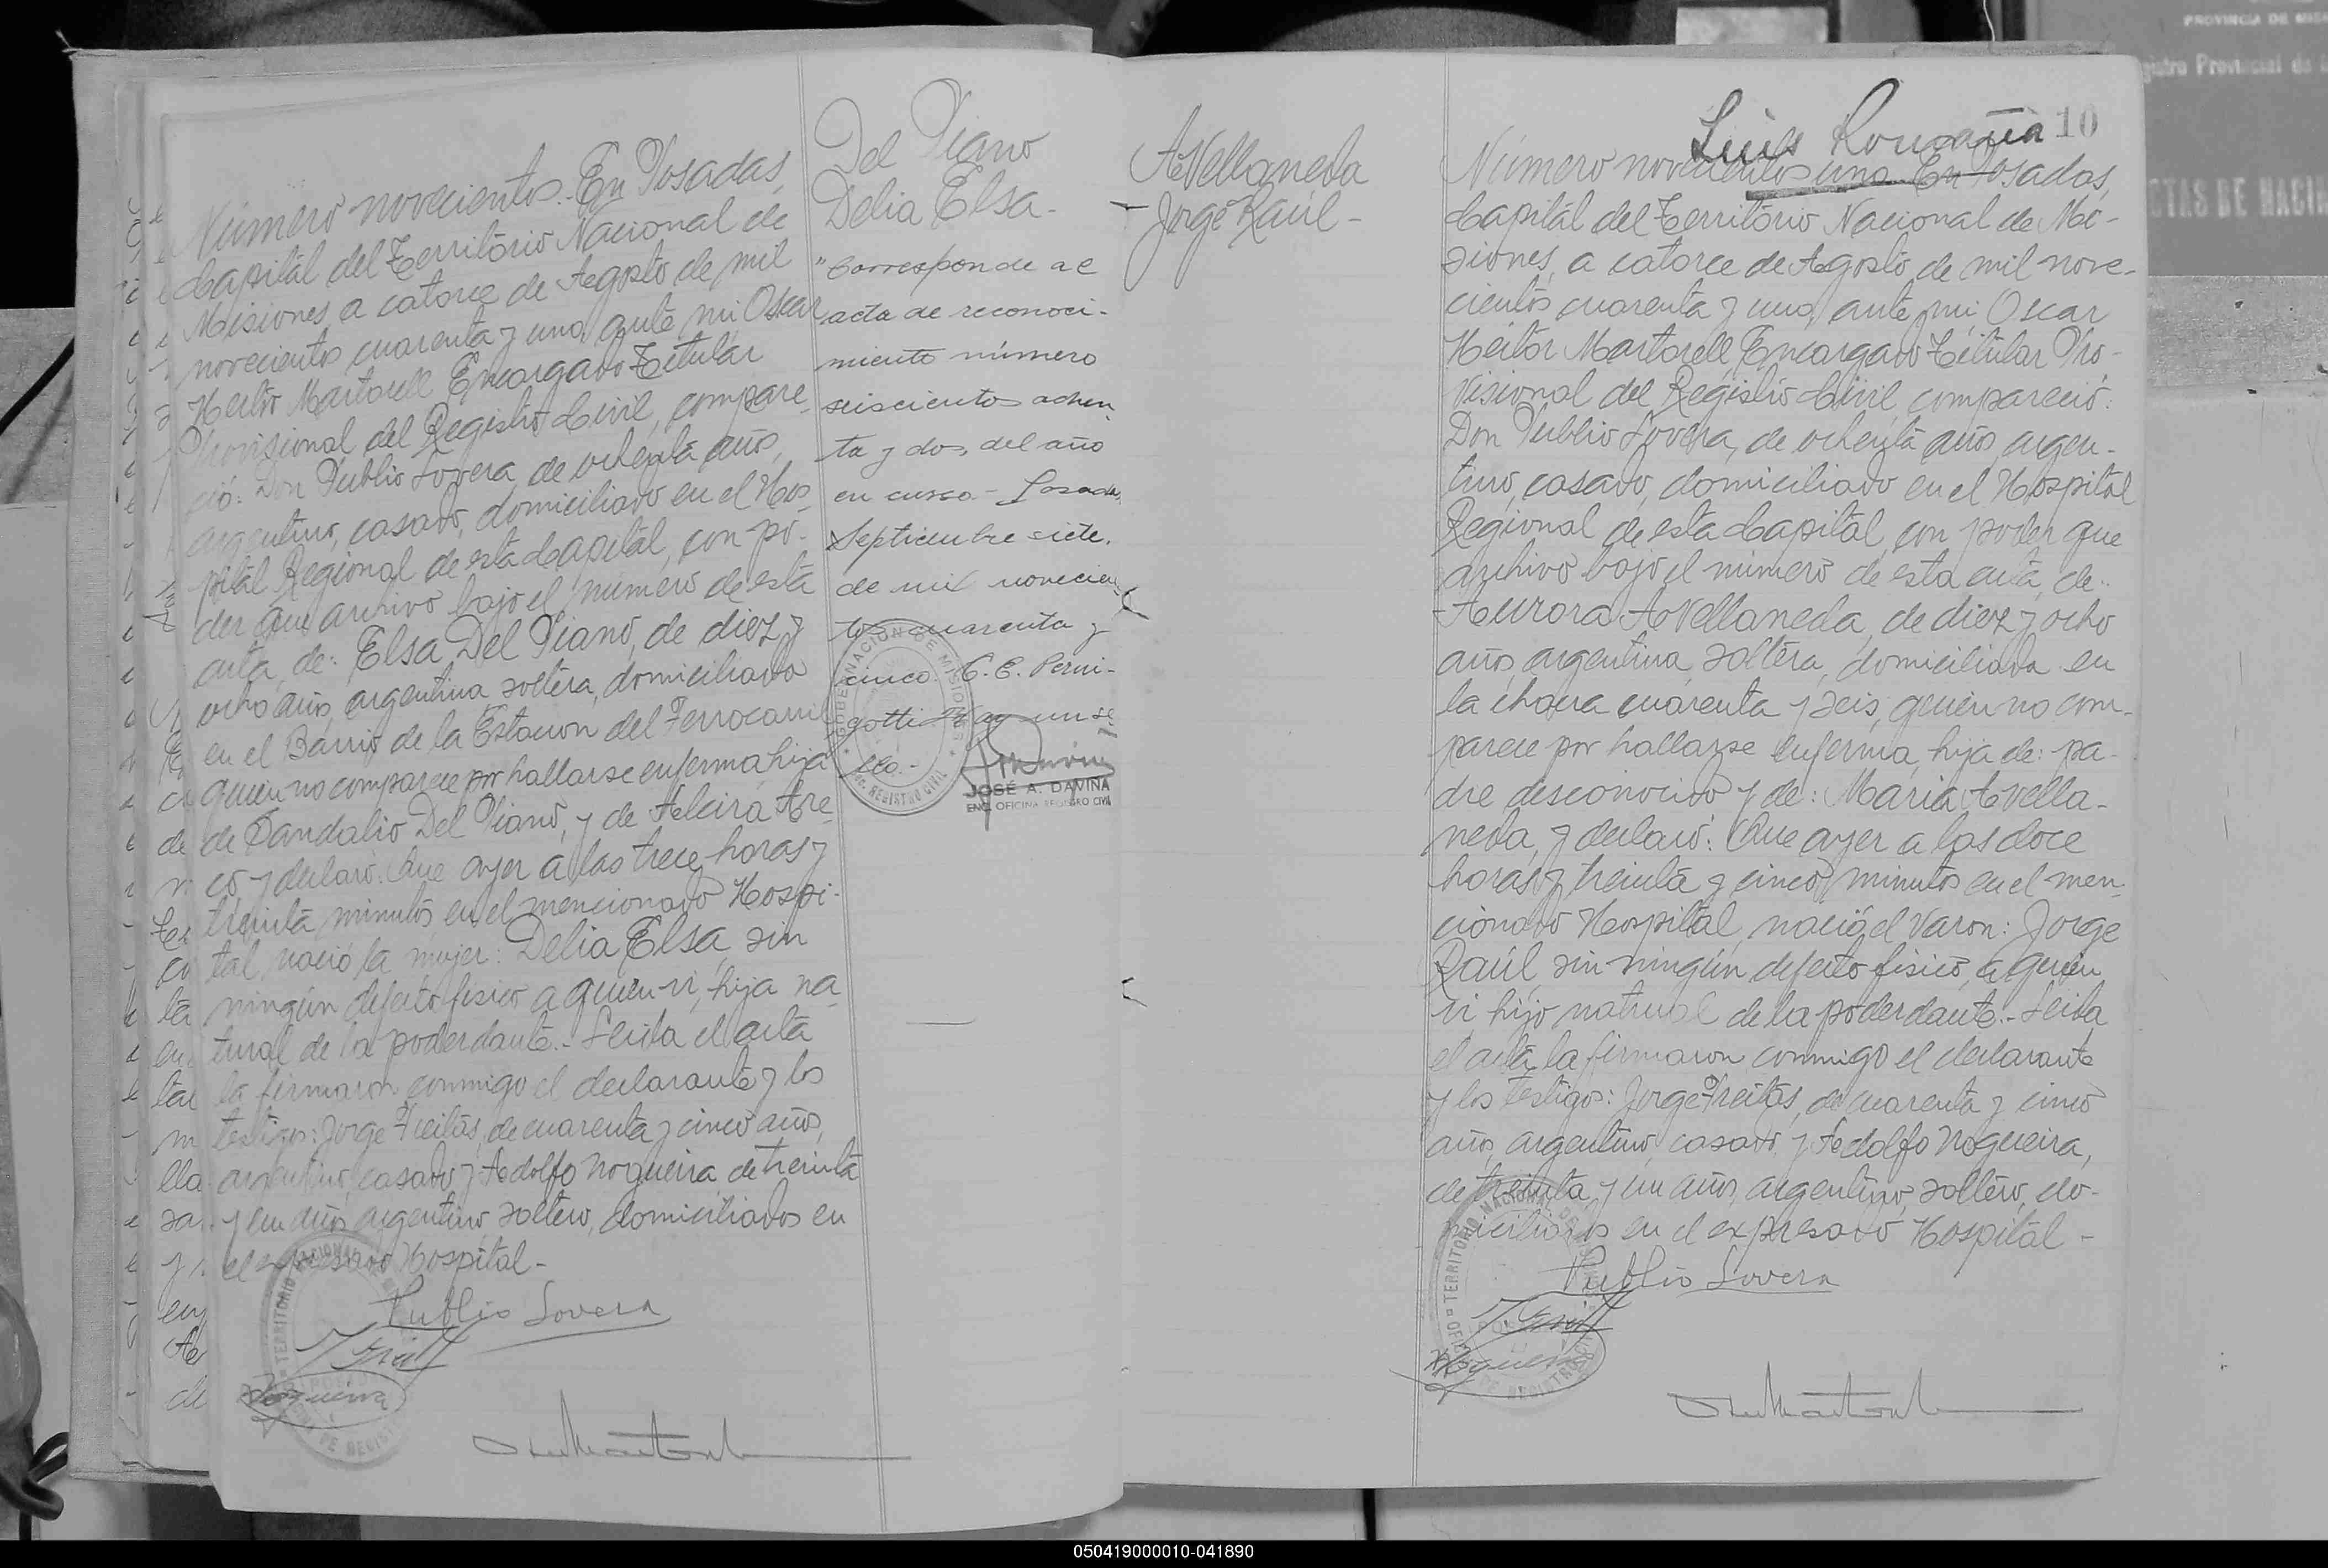 Número novecientos.- En Posadas,
Capital del Territorio Nacional de
Misiones a catorce de Agosto de mil
novecientos cuarenta y uno, ante mi Oscar
Heitor Martorell Encargado Titular
Provisional del Registro Civil, compare
ció: Don Publio Lovera, de ochenta años,
argentino, casado, domiciliado en el Hos
pital Regional de esta Capital, con po-
der que archivo bajo el número de esta
acta, de: Elsa Del Piano, de diez y
ocho años, argentina, soltera, domiciliada
en el Barrio de la Estacion del Ferrocarril
quien no comparece por hallarse enferma, hija
de Dandalio Del Piano, y de Alcira Are
co, y declaró: Que ayer a las trece horas y
treinta minutos en el mencionado Hospi-
tal, nació la mujer: Delia Elsa, sin
ningún defecto fisico a quien vi, hija na
tural de la poderdante.- Leida el acta
la firmaron conmigo el declarante y los
testigos: Jorge Freitas, de cuarenta y cinco años,
argentino, casado y Adolfo Nogueira de treinta
y un años, argentino, soltero, domiciliados en
el expresado Hospital.-
Publio Lovera
Nogueira
Del Piano
Delia Elsa-
"Corresponde al
acta de reconoci-
miento número
seiscientos ochen
ta y dos, del año
en curso.- Posadas,
Septiembre siete,
de mil novecien
tos cuarenta y
cinco. C. E. Perni-
gotti. Hay un se
llo.-
GOBERNACION DE MISIONES
ENC. REGISTRO CIVIL
JOSÉ A. DAVIÑA
ENC. OFICINA REGISTRO CIVIL
Avellaneda
-Jorge Raúl-
Luis Romaña 10
Número novecientos uno. En Posadas,
Capital del Territorio Nacional de Mi-
siones, a catorce de Agosto de mil nove-
cientos cuarenta y uno, ante mi, Oscar
Heitor Martorell, Encargado Titular Pro-
visional del Registro Civil, compareció:
Don Publio Lovera, de ochenta años, argen-
tino, casado, domiciliado en el Hospital
Regional de esta Capital, con poder que
archivo bajo el número de esta acta, de:
Aurora Avellaneda, de diez y ocho
años, argentina, soltera, domiciliada en
la chacra cuarenta y seis, quien no com-
parece por hallarse enferma, hija de: pa-
dre desconocido y de: Maria Avella-
neda, y declaró: Que ayer a las doce
horas y treinta y cinco minutos en el men
cionado Hospital, nació el varon: Jorge
Raúl, sin ningún defecto fisico, a quien
vi, hijo natural de la poderdante.- Leida
el acta la firmaron conmigo el declarante
y los testigos: Jorge Freitas, de cuarenta y cinco
años, argentino, casado y Adolfo Nogueira,
de treinta y un años, argentino, soltero, do-
miciliados en el expresado Hospital-
Publio Lovera
Nogueira
050419000010-041890